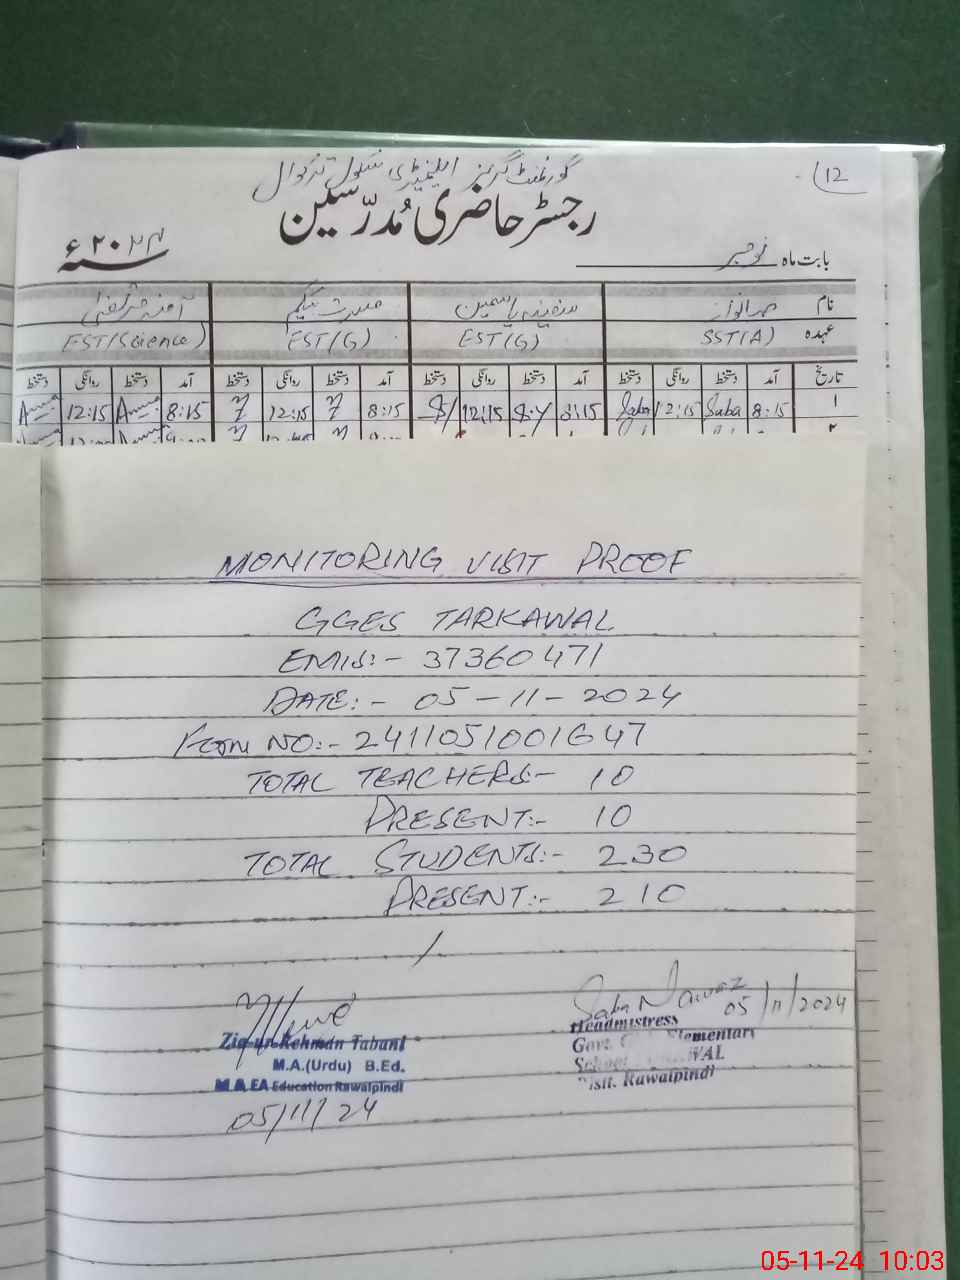 گورنمنٹ گرلز ایلیمنٹری سکول ترکوال
12
رجسٹر حاضری مُدرّسین
بابت ماہ نومبر
سنہ ۲۰۲۴ء
نام صبا نواز سفینہ یاسمین مسرت بیگم آمنہ مرتضیٰ
عہدہ SST(A) EST(G) EST(G) EST(Science)
تاریخ آمد دستخط روانگی دستخط آمد دستخط روانگی دستخط آمد دستخط روانگی دستخط آمد دستخط روانگی دستخط
۱ 8:15 Saba 12:15 Saba 8:15 12:15 8:15 12:15 8:15 12:15
۲
MONITORING VISIT PROOF
GGES TARKAWAL
EMIS:- 37360471
DATE:- 05-11-2024
Form NO:- 2411051001647
TOTAL TEACHERS:- 10
PRESENT:- 10
TOTAL STUDENTS:- 230
PRESENT:- 210
Zia-ur-Rehman Tabani
M.A.(Urdu) B.Ed.
M.&EA Education Rawalpindi
05/11/24
Saba Nawaz
05/11/2024
Headmistress
Govt. Elementary
School WAL
Distt. Rawalpindi
05-11-24 10:03